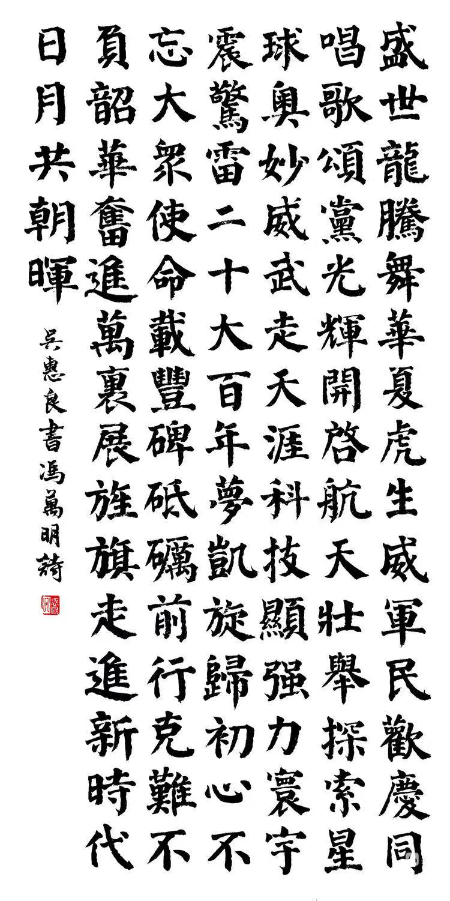 盛世龍騰舞華夏虎生威軍民歡慶同
唱歌頌黨光輝開啓航天壯舉探索星
球奧妙威武走天涯科技顯强力寰宇
震驚雷二十大百年夢凱旋歸初心不
忘大衆使命載豐碑砥礪前行克難不
負韶華奮進萬裏展旌旗走進新時代
日月共朝暉
吳惠良書馮萬明詩